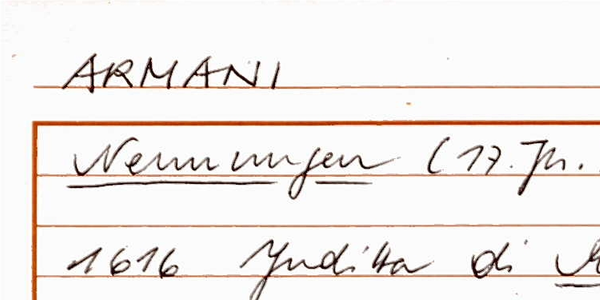 ARMANI
Nennungen (17. Jh.
1616 Juditta di